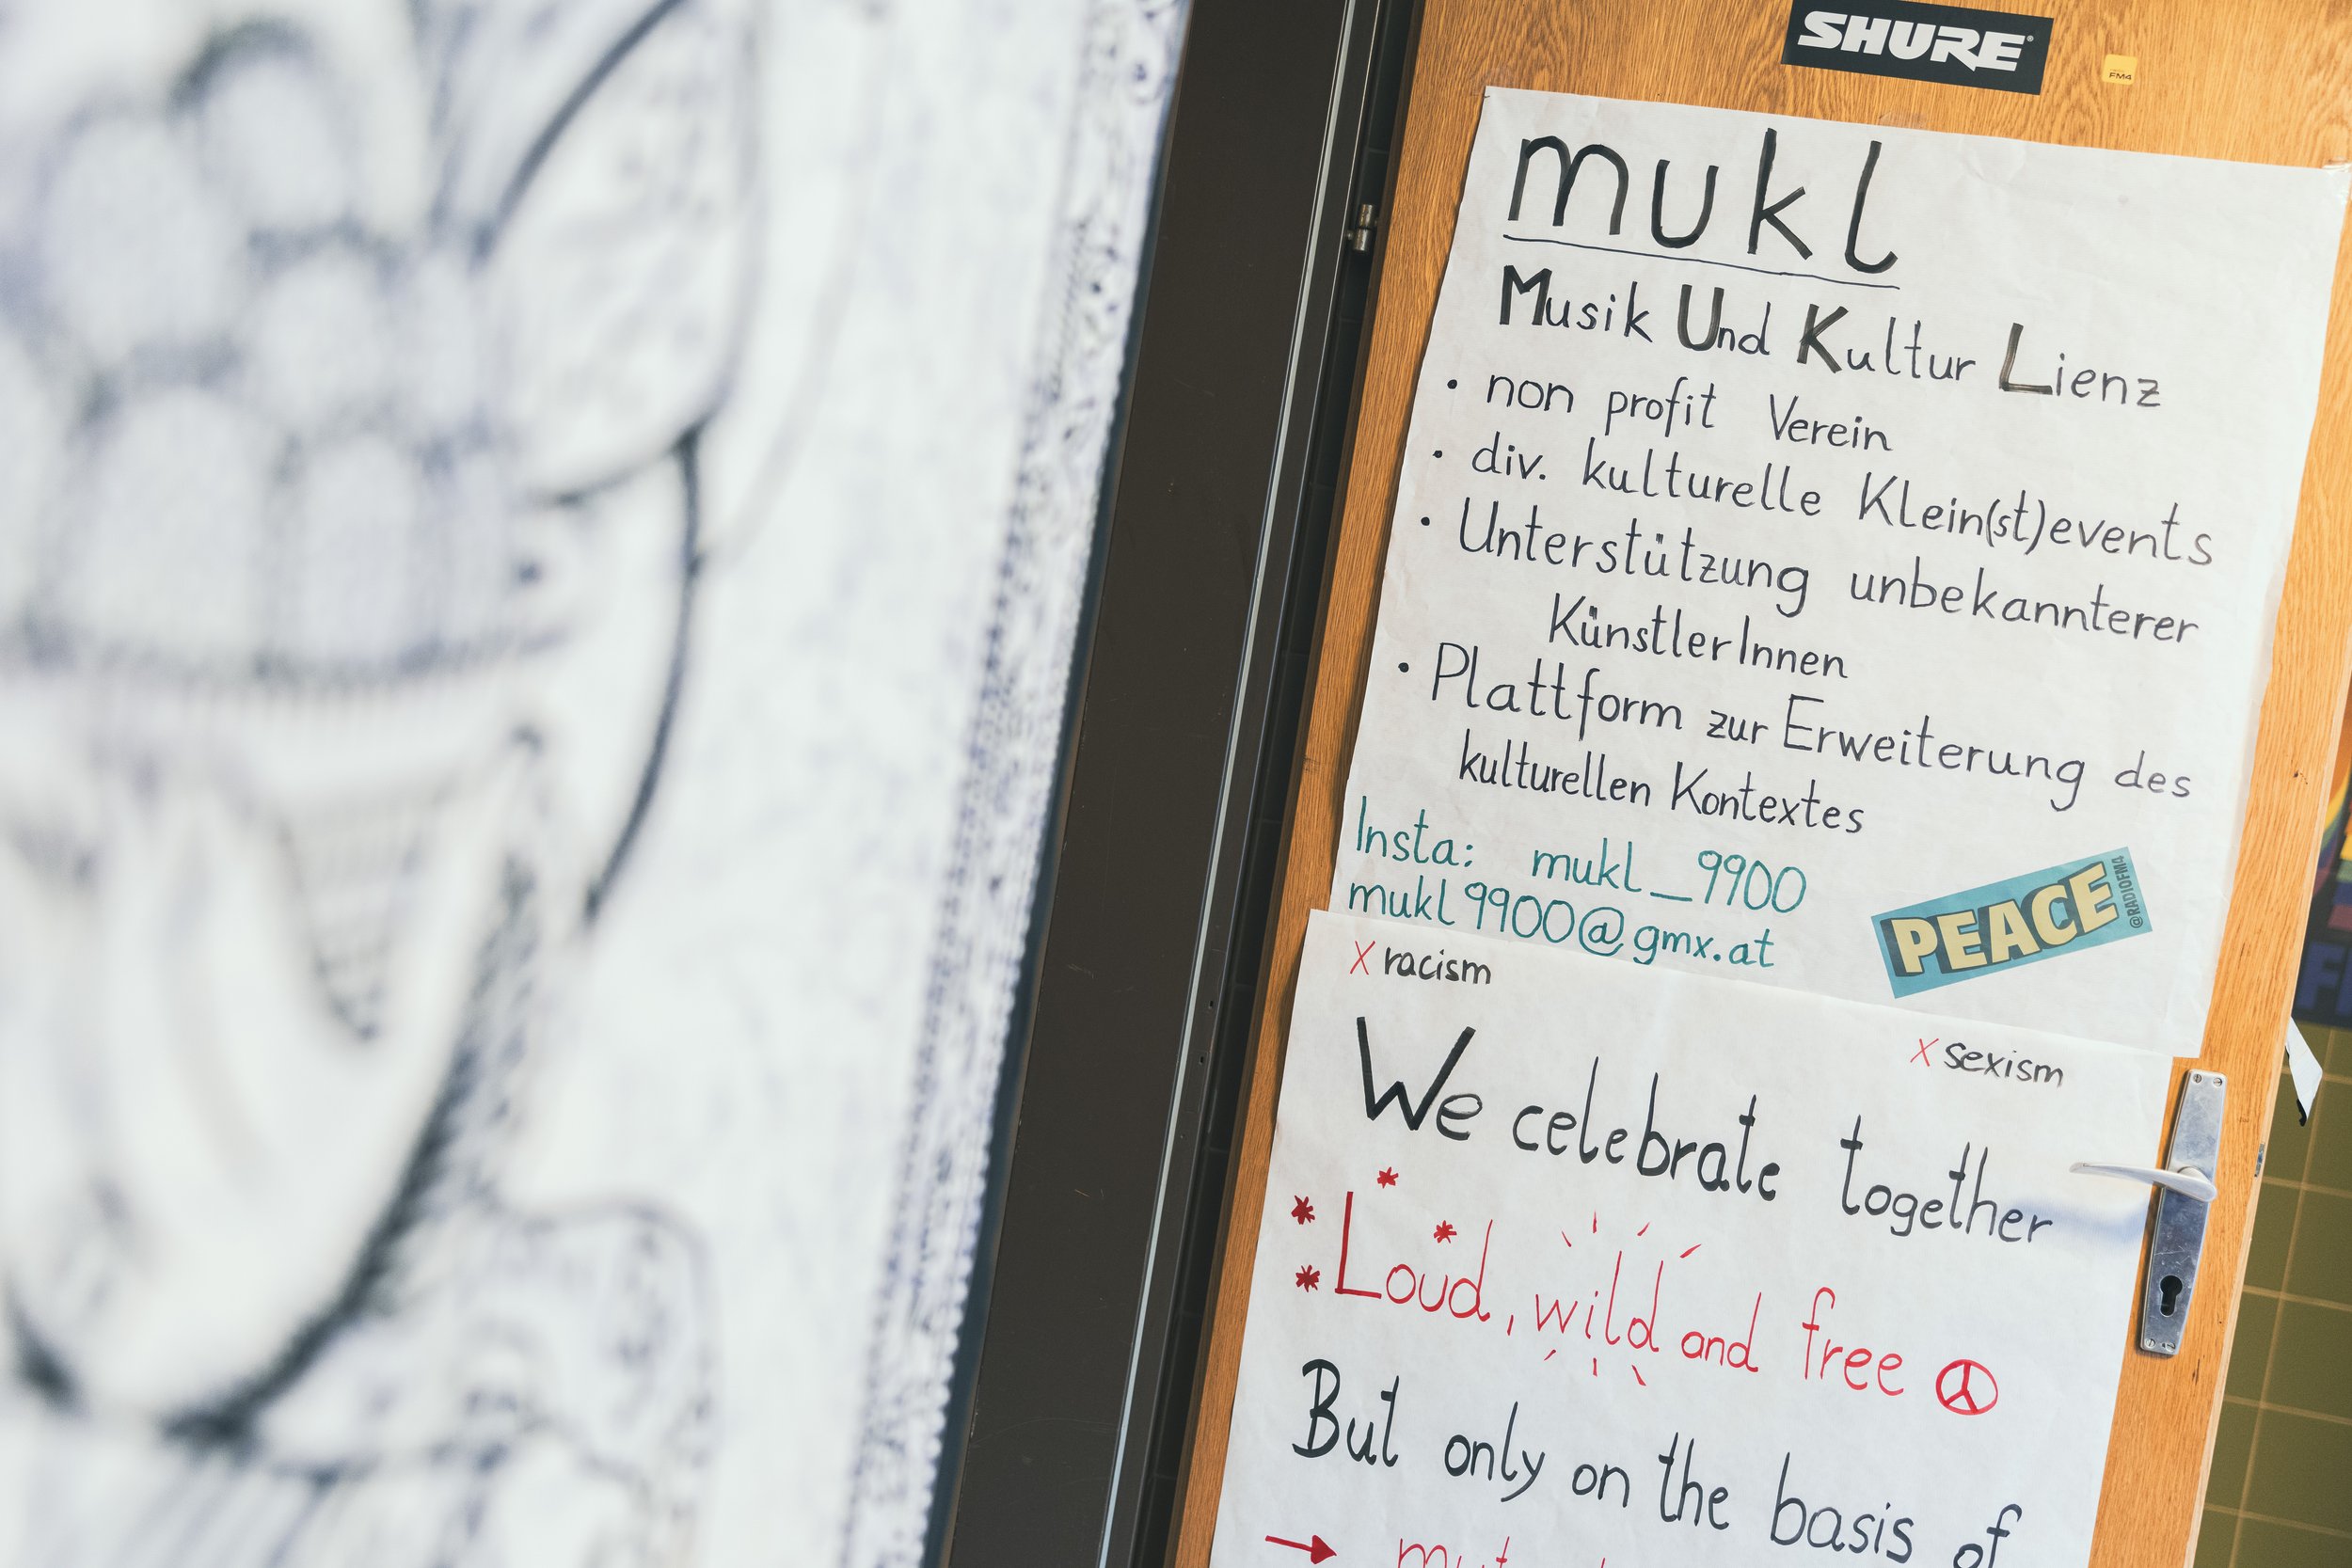 SHURE
FM4
mukl
Musik Und Kultur Lienz
• non profit Verein
• div. kulturelle Klein(st)events
• Unterstützung unbekannterer
KünstlerInnen
• Plattform zur Erweiterung des
kulturellen Kontextes
Insta: mukl_9900
mukl9900@gmx.at
PEACE
@RADIOFM4
X racism
X sexism
We celebrate together
Loud, wild and free
But only on the basis of
→